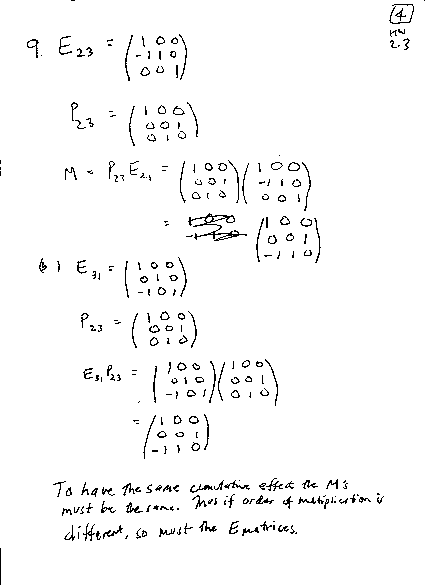 4
HW
2.3
9. E23 = (1 0 0
-1 1 0
0 0 1)
P23 = (1 0 0
0 0 1
0 1 0)
M = P23 E21 = (1 0 0
0 0 1
0 1 0) (1 0 0
-1 1 0
0 0 1)
= (1 0 0
0 0 1
-1 1 0)
b) E31 = (1 0 0
0 1 0
-1 0 1)
P23 = (1 0 0
0 0 1
0 1 0)
E31 P23 = (1 0 0
0 1 0
-1 0 1) (1 0 0
0 0 1
0 1 0)
= (1 0 0
0 0 1
-1 1 0)
To have the same cumulative effect the M's
must be the same. Thus if order of multiplication is
different, so must the E matrices.